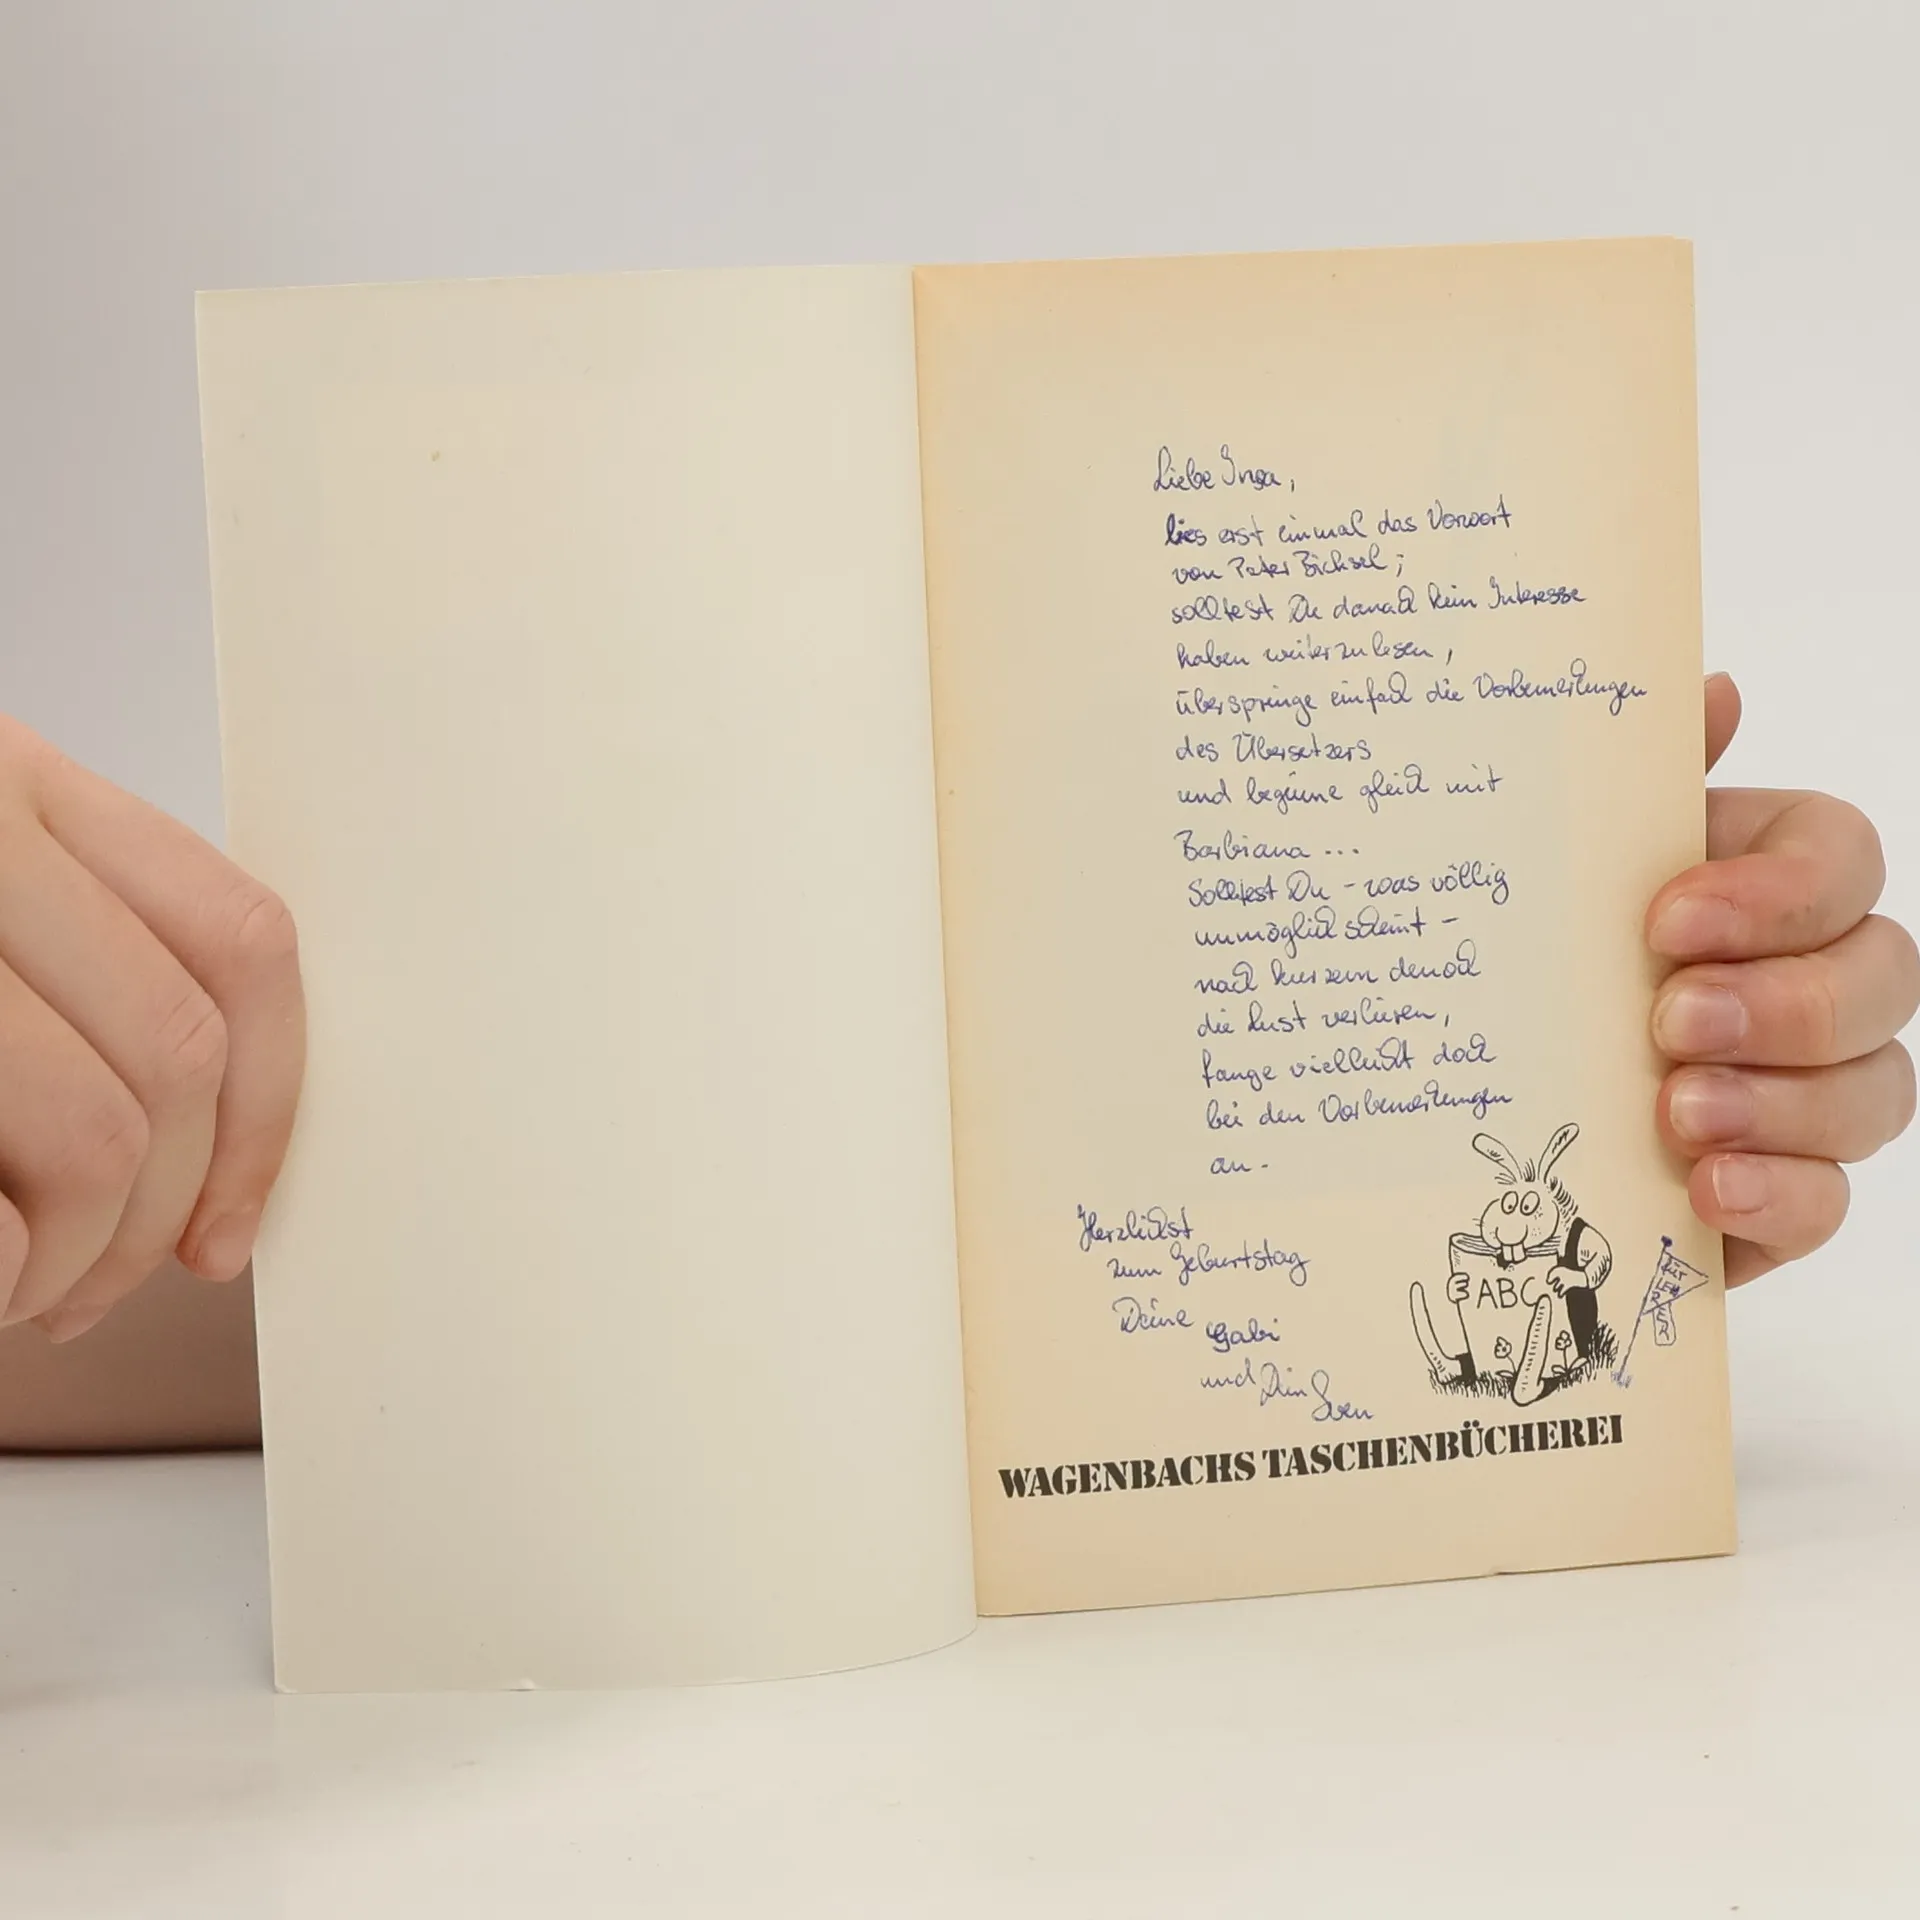 Liebe Inga,
lies erst einmal das Vorwort
von Peter Bichsel;
solltest Du danach kein Interesse
haben weiterzulesen,
überspringe einfach die Vorbemerkungen
des Übersetzers
und beginne gleich mit
Barbiana ...
Solltest Du - was völlig
unmöglich scheint -
nach kurzem denoch
die Lust verlieren,
fange vielleicht doch
bei den Vorbemerkungen
an.
Herzlichst
zum Geburtstag
Deine
Gabi
und Dein Sven
ABC
FÜR
LEH
RER
WAGENBACHS TASCHENBÜCHEREI